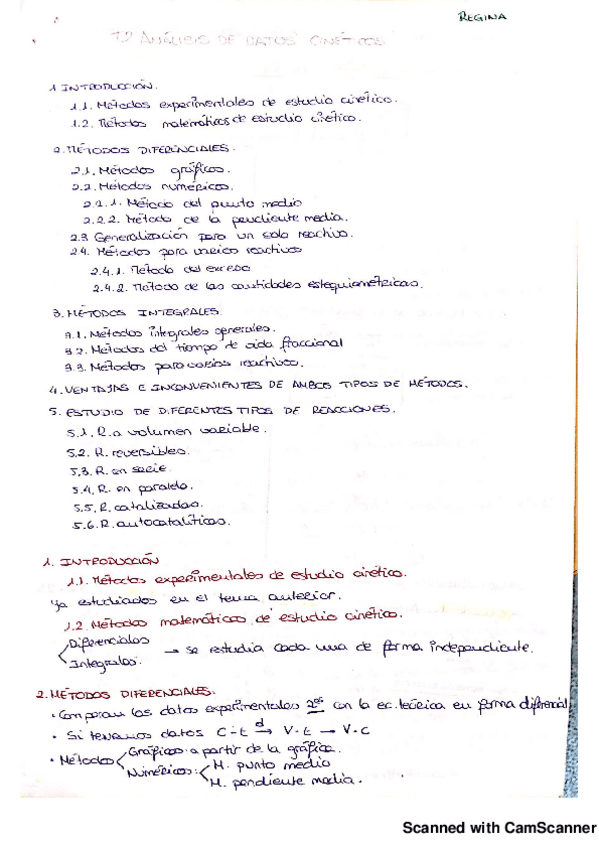 REGINA
T2 ANÁLISIS DE DATOS CINÉTICOS
1 INTRODUCCIÓN.
1.1. Métodos experimentales de estudio cinético.
1.2. Métodos matemáticos de estudio cinético.
2. MÉTODOS DIFERENCIALES.
2.1. Métodos gráficos.
2.2. Métodos numéricos.
2.2.1. Método del punto medio
2.2.2. Método de la pendiente media.
2.3 Generalización para un solo reactivo.
2.4. Métodos para varios reactivos
2.4.1. Método del exceso
2.4.2. Método de las cantidades estequiométricas.
3. MÉTODOS INTEGRALES.
3.1. Métodos integrales generales.
3.2. Métodos del tiempo de vida fraccional
3.3. Métodos para varios reactivos.
4. VENTAJAS E INCONVENIENTES DE AMBOS TIPOS DE MÉTODOS.
5. ESTUDIO DE DIFERENTES TIPOS DE REACCIONES.
5.1. R. a volumen variable.
5.2. R. reversibles.
5.3. R. en serie.
5.4. R. en paralelo.
5.5. R. catalizadas.
5.6. R. autocatalíticas.
1. INTRODUCCIÓN
1.1. Métodos experimentales de estudio cinético.
Ya estudiados en el tema anterior.
1.2. Métodos matemáticos de estudio cinético.
Diferenciales
Integrales.
→ se estudia cada una de forma independiente.
2. MÉTODOS DIFERENCIALES.
· Comparan los datos experimentales con la ec. teórica en forma diferencial
· Si tenemos datos C-t d→ V-t → V-C
· Métodos
Gráficos: a partir de la gráfica.
Numéricos:
M. punto medio
M. pendiente media.
Scanned with CamScanner